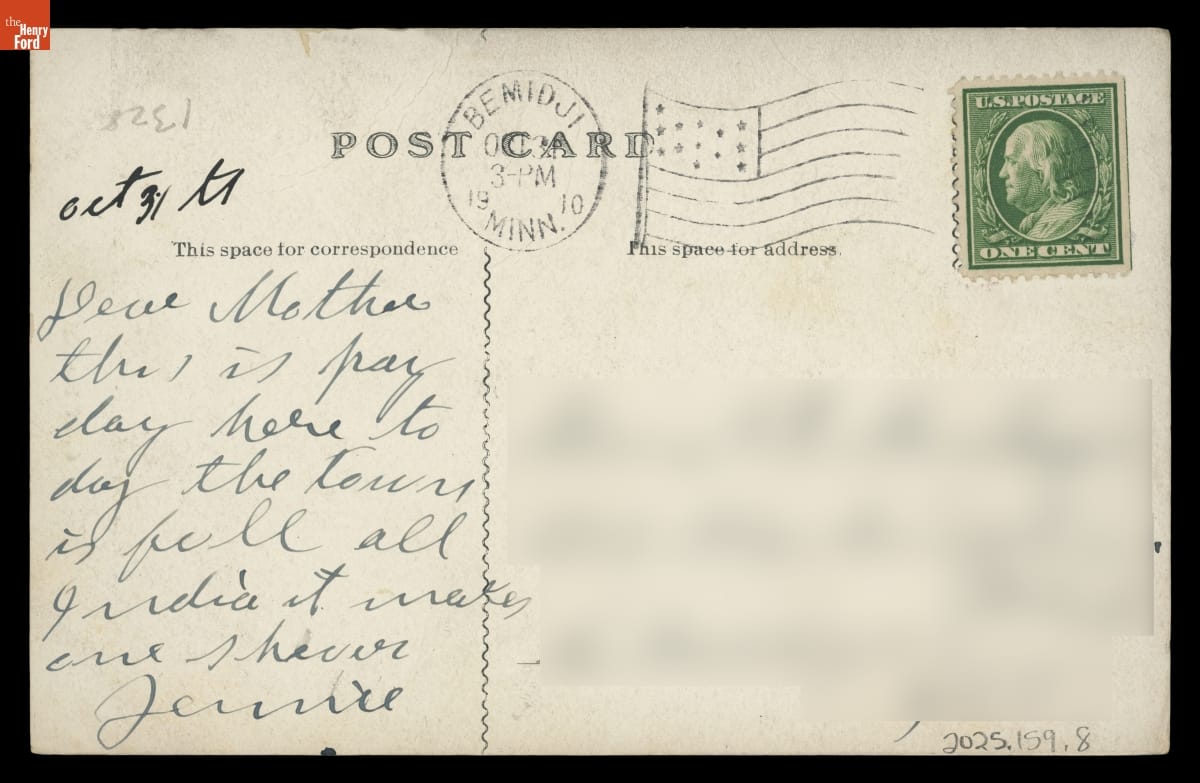 the
Henry
Ford
1328
POST CARD
BEMIDJI
OCT 31
3-PM
1910
MINN.
U.S. POSTAGE
ONE CENT
Oct 31 st
This space for correspondence
This space for address.
Dear Mother
this is pay
day here to
day the town
is full all
India it makes
one shever
Jennie
2025.159.8